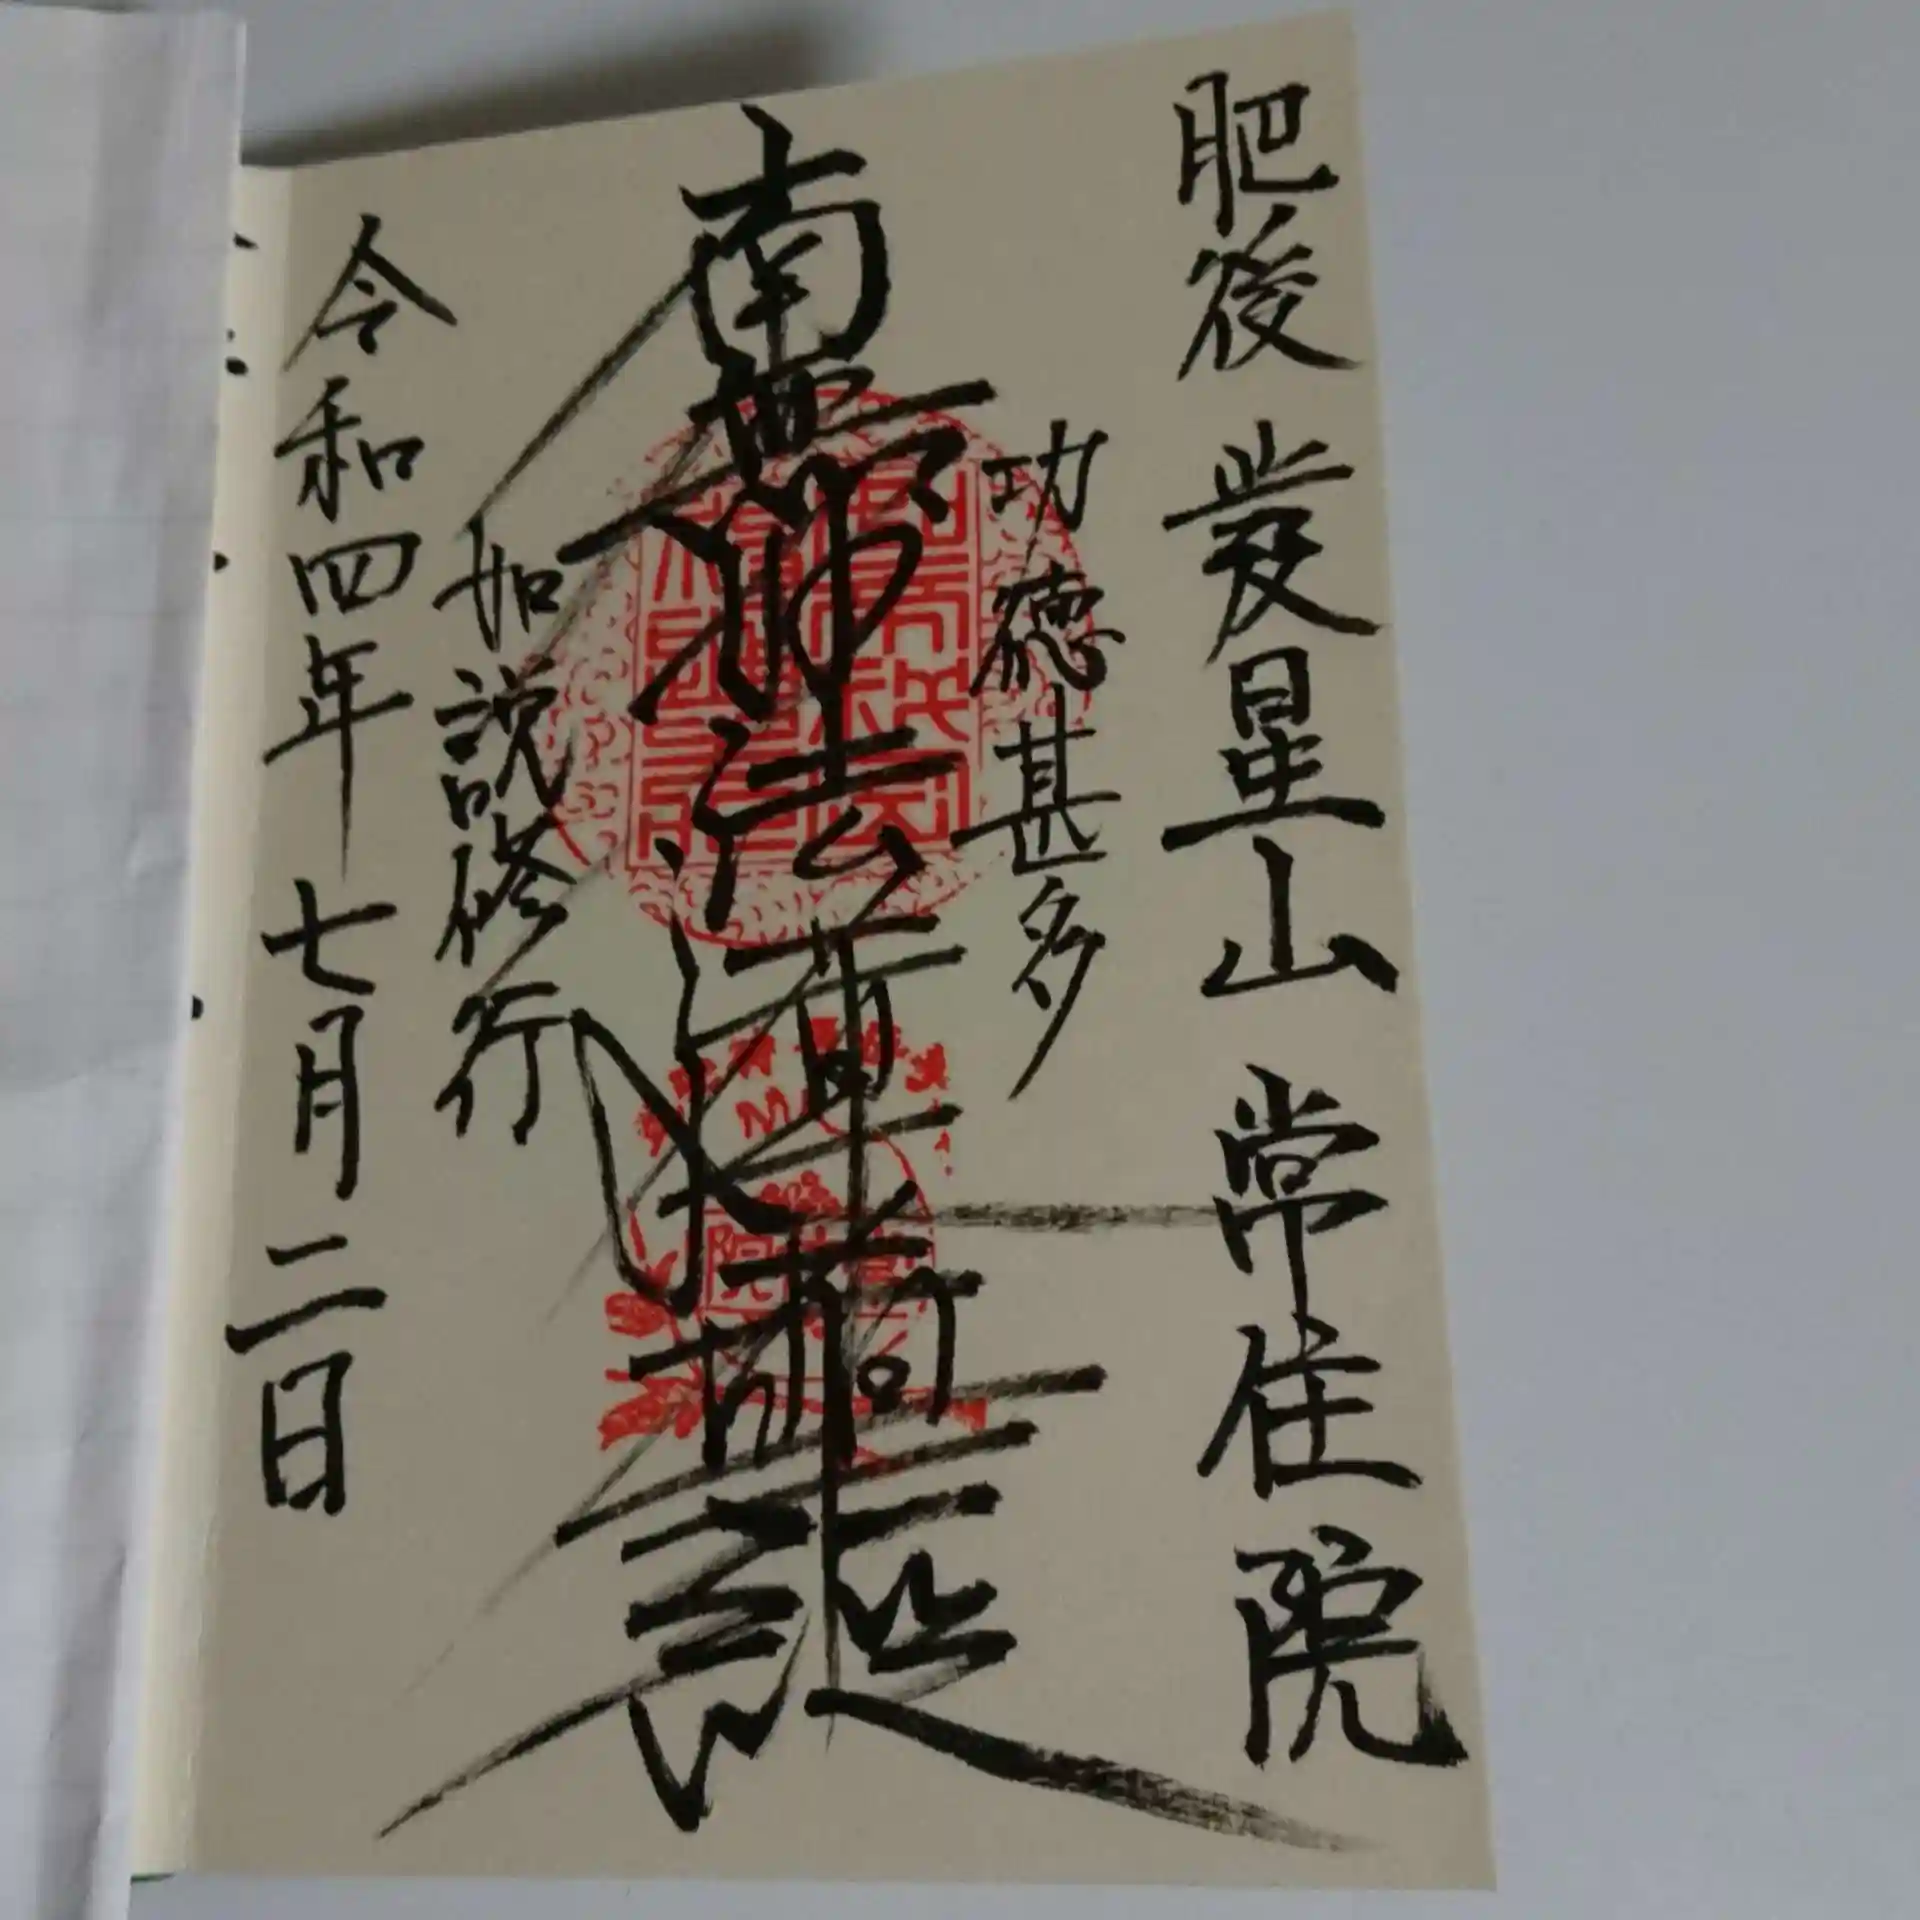 肥後 発星山 常住院
功徳甚多
南無妙法蓮華経
如説修行
令和四年 七月二日